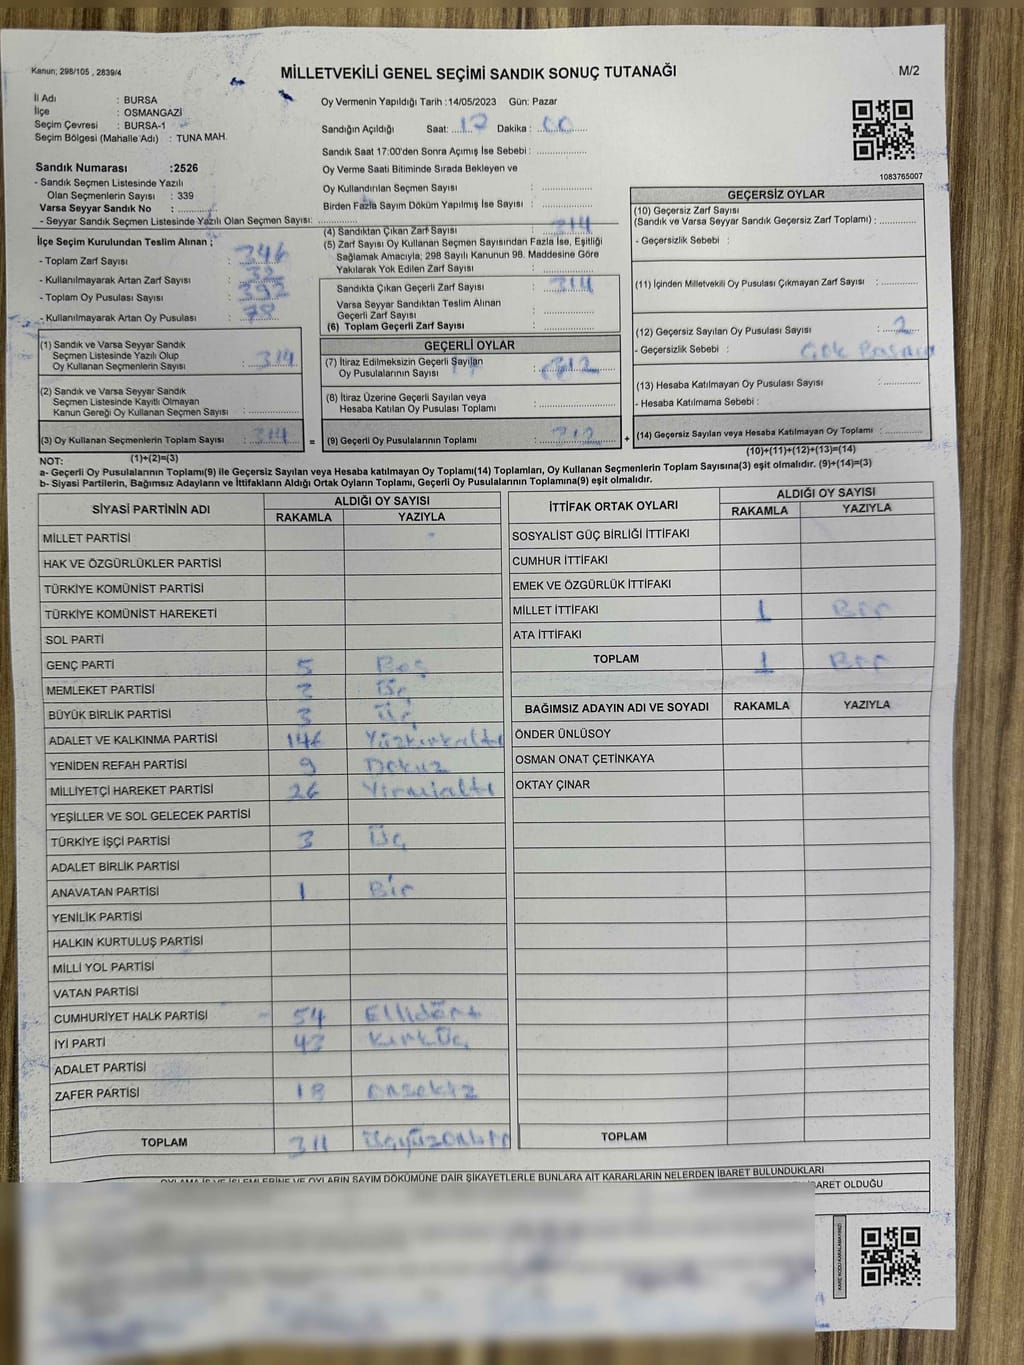 Kanun; 298/105 , 2839/4
MİLLETVEKİLİ GENEL SEÇİMİ SANDIK SONUÇ TUTANAĞI
M/2
İl Adı : BURSA
İlçe : OSMANGAZİ
Seçim Çevresi : BURSA-1
Seçim Bölgesi (Mahalle Adı) : TUNA MAH.
Sandık Numarası :2526
- Sandık Seçmen Listesinde Yazılı
Olan Seçmenlerin Sayısı : 339
Varsa Seyyar Sandık No : ............
- Seyyar Sandık Seçmen Listesinde Yazılı Olan Seçmen Sayısı: ............
İlçe Seçim Kurulundan Teslim Alınan ;
- Toplam Zarf Sayısı : 346
- Kullanılmayarak Artan Zarf Sayısı : 32
- Toplam Oy Pusulası Sayısı : 392
- Kullanılmayarak Artan Oy Pusulası : 78
(1) Sandık ve Varsa Seyyar Sandık
Seçmen Listesinde Yazılı Olup
Oy Kullanan Seçmenlerin Sayısı : 314
(2) Sandık ve Varsa Seyyar Sandık
Seçmen Listesinde Kayıtlı Olmayan
Kanun Gereği Oy Kullanan Seçmen Sayısı : ............
(3) Oy Kullanan Seçmenlerin Toplam Sayısı : 314
(1)+(2)=(3)
Oy Vermenin Yapıldığı Tarih :14/05/2023 Gün: Pazar
Sandığın Açıldığı Saat: 17 Dakika : 00
Sandık Saat 17:00'den Sonra Açılmış İse Sebebi : ............
Oy Verme Saati Bitiminde Sırada Bekleyen ve
Oy Kullandırılan Seçmen Sayısı : ............
Birden Fazla Sayım Döküm Yapılmış İse Sayısı : ............
(4) Sandıktan Çıkan Zarf Sayısı : 314
(5) Zarf Sayısı Oy Kullanan Seçmen Sayısından Fazla İse, Eşitliği
Sağlamak Amacıyla; 298 Sayılı Kanunun 98. Maddesine Göre
Yakılarak Yok Edilen Zarf Sayısı : ............
Sandıkta Çıkan Geçerli Zarf Sayısı : 314
Varsa Seyyar Sandıktan Teslim Alınan
Geçerli Zarf Sayısı : ............
(6) Toplam Geçerli Zarf Sayısı : ............
GEÇERLİ OYLAR
(7) İtiraz Edilmeksizin Geçerli Sayılan
Oy Pusulalarının Sayısı : 312
(8) İtiraz Üzerine Geçerli Sayılan veya
Hesaba Katılan Oy Pusulası Toplamı : ............
= (9) Geçerli Oy Pusulalarının Toplamı : 312 +
1083765007
GEÇERSİZ OYLAR
(10) Geçersiz Zarf Sayısı
(Sandık ve Varsa Seyyar Sandık Geçersiz Zarf Toplamı) : ............
- Geçersizlik Sebebi :
(11) İçinden Milletvekili Oy Pusulası Çıkmayan Zarf Sayısı : ............
(12) Geçersiz Sayılan Oy Pusulası Sayısı : 2
- Geçersizlik Sebebi : Çok
(13) Hesaba Katılmayan Oy Pusulası Sayısı : ............
- Hesaba Katılmama Sebebi :
(14) Geçersiz Sayılan veya Hesaba Katılmayan Oy Toplamı : ............
(10)+(11)+(12)+(13)=(14)
NOT:
a- Geçerli Oy Pusulalarının Toplamı(9) ile Geçersiz Sayılan veya Hesaba katılmayan Oy Toplamı(14) Toplamları, Oy Kullanan Seçmenlerin Toplam Sayısına(3) eşit olmalıdır. (9)+(14)=(3)
b- Siyasi Partilerin, Bağımsız Adayların ve İttifakların Aldığı Ortak Oyların Toplamı, Geçerli Oy Pusulalarının Toplamına(9) eşit olmalıdır.
SİYASİ PARTİNİN ADI ALDIĞI OY SAYISI
RAKAMLA YAZIYLA
MİLLET PARTİSİ
HAK VE ÖZGÜRLÜKLER PARTİSİ
TÜRKİYE KOMÜNİST PARTİSİ
TÜRKİYE KOMÜNİST HAREKETİ
SOL PARTİ
GENÇ PARTİ 5 Beş
MEMLEKET PARTİSİ 3 Üç
BÜYÜK BİRLİK PARTİSİ 3 Üç
ADALET VE KALKINMA PARTİSİ 146 Yüzkırkaltı
YENİDEN REFAH PARTİSİ 9 Dokuz
MİLLİYETÇİ HAREKET PARTİSİ 26 Yirmialtı
YEŞİLLER VE SOL GELECEK PARTİSİ
TÜRKİYE İŞÇİ PARTİSİ 3 Üç
ADALET BİRLİK PARTİSİ
ANAVATAN PARTİSİ 1 Bir
YENİLİK PARTİSİ
HALKIN KURTULUŞ PARTİSİ
MİLLİ YOL PARTİSİ
VATAN PARTİSİ
CUMHURİYET HALK PARTİSİ 54 Ellidört
İYİ PARTİ 43 Kırküç
ADALET PARTİSİ
ZAFER PARTİSİ 18 Onsekiz
TOPLAM 311 Üçyüzonbir
İTTİFAK ORTAK OYLARI ALDIĞI OY SAYISI
RAKAMLA YAZIYLA
SOSYALİST GÜÇ BİRLİĞİ İTTİFAKI
CUMHUR İTTİFAKI
EMEK VE ÖZGÜRLÜK İTTİFAKI
MİLLET İTTİFAKI 1 Bir
ATA İTTİFAKI
TOPLAM 1 Bir
BAĞIMSIZ ADAYIN ADI VE SOYADI RAKAMLA YAZIYLA
ÖNDER ÜNLÜSOY
OSMAN ONAT ÇETİNKAYA
OKTAY ÇINAR
TOPLAM
OYLAMA İŞ VE İŞLEMLERİNE VE OYLARIN SAYIM DÖKÜMÜNE DAİR ŞİKAYETLERLE BUNLARA AİT KARARLARIN NELERDEN İBARET BULUNDUKLARI
İBARET OLDUĞU